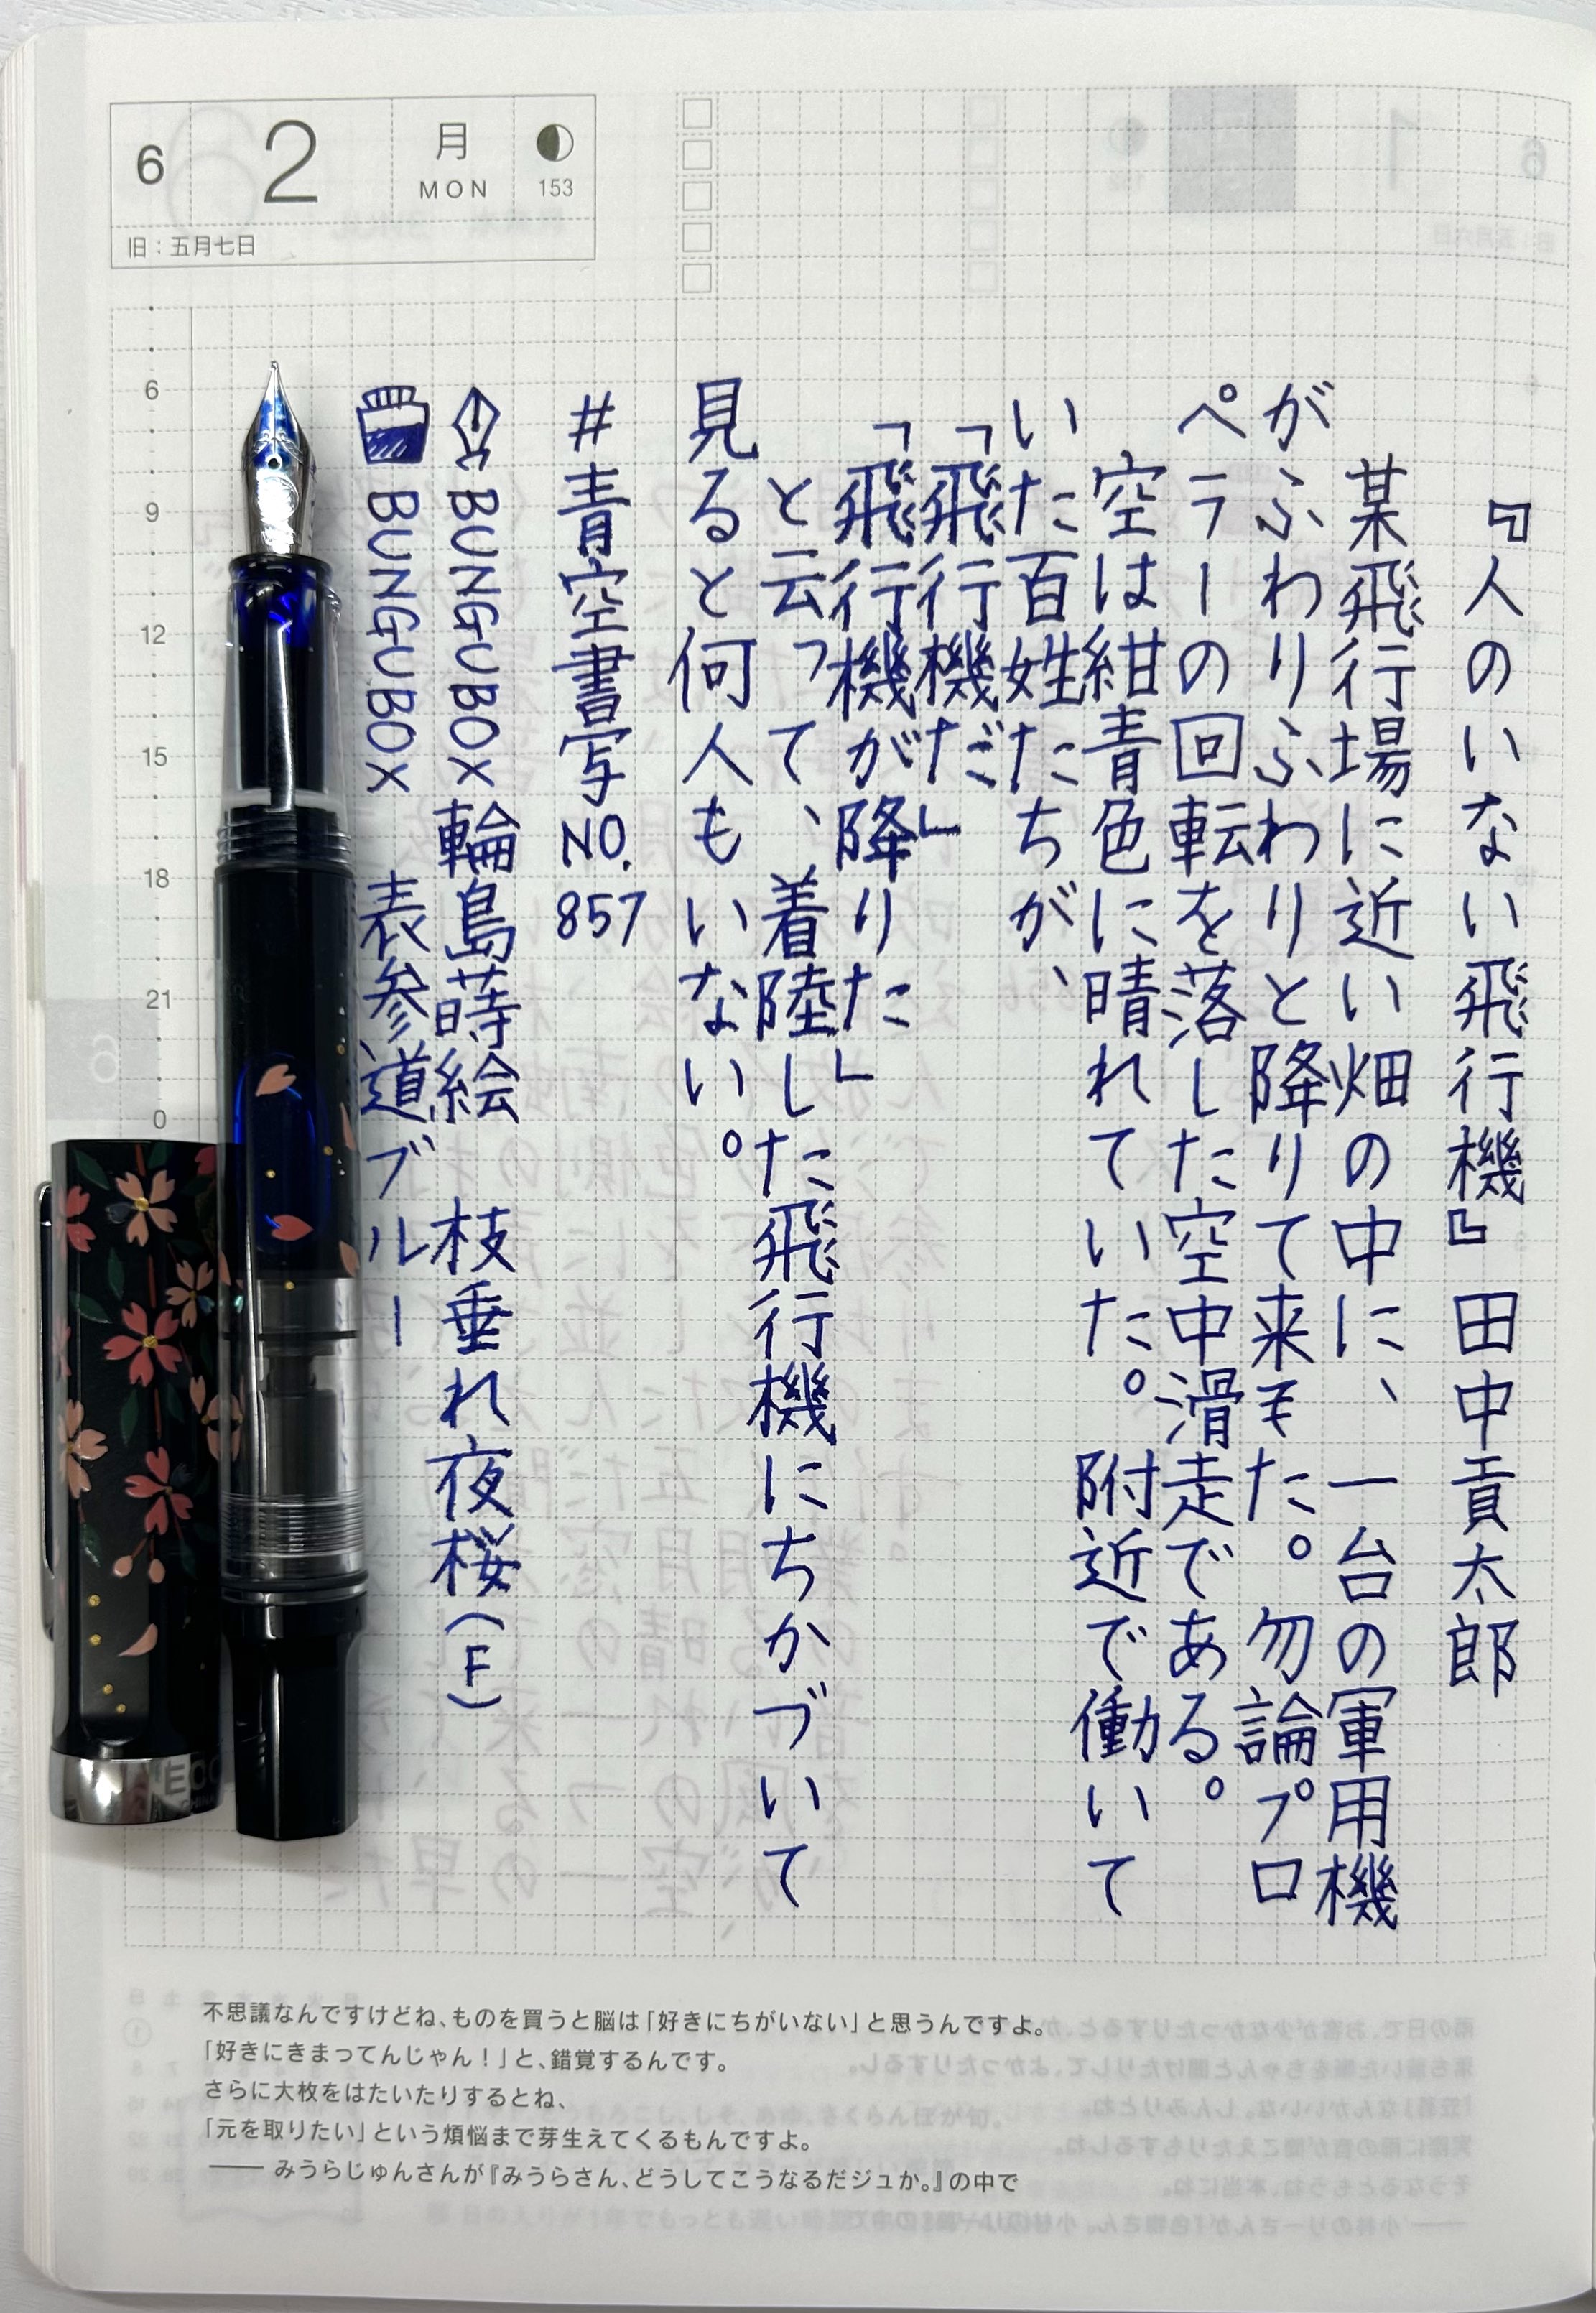 6
2
月
MON
153
旧：五月七日
6
9
12
15
18
21
0
『人のいない飛行機』田中貢太郎
某飛行場に近い畑の中に、一台の軍用機
がふわりふわりと降りて来モた。勿論プロ
ペラーの回転を落した空中滑走である。
空は紺青色に晴れていた。附近で働いて
いた百姓たちが、
「飛行機だ」
「飛行機が降りた」
と云って、着陸した飛行機にちかづいて
見ると何人もいない。
#青空書写NO.857
BUNGUBOX×輪島蒔絵 枝垂れ夜桜(F)
BUNGUBOX× 表参道ブルー
不思議なんですけどね、ものを買うと脳は「好きにちがいない」と思うんですよ。
「好きにきまってんじゃん！」と、錯覚するんです。
さらに大枚をはたいたりするとね、
「元を取りたい」という煩悩まで芽生えてくるもんですよ。
―― みうらじゅんさんが『みうらさん、どうしてこうなるだジュか。』の中で